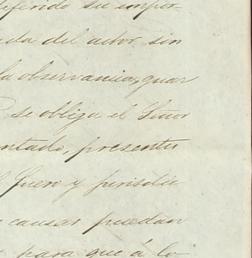 referido su impor
ada del actor sin
la observancia, guar
se obliga el Señor
entado, presenten
l fuero y jurisdic
causas puedan
para que á lo